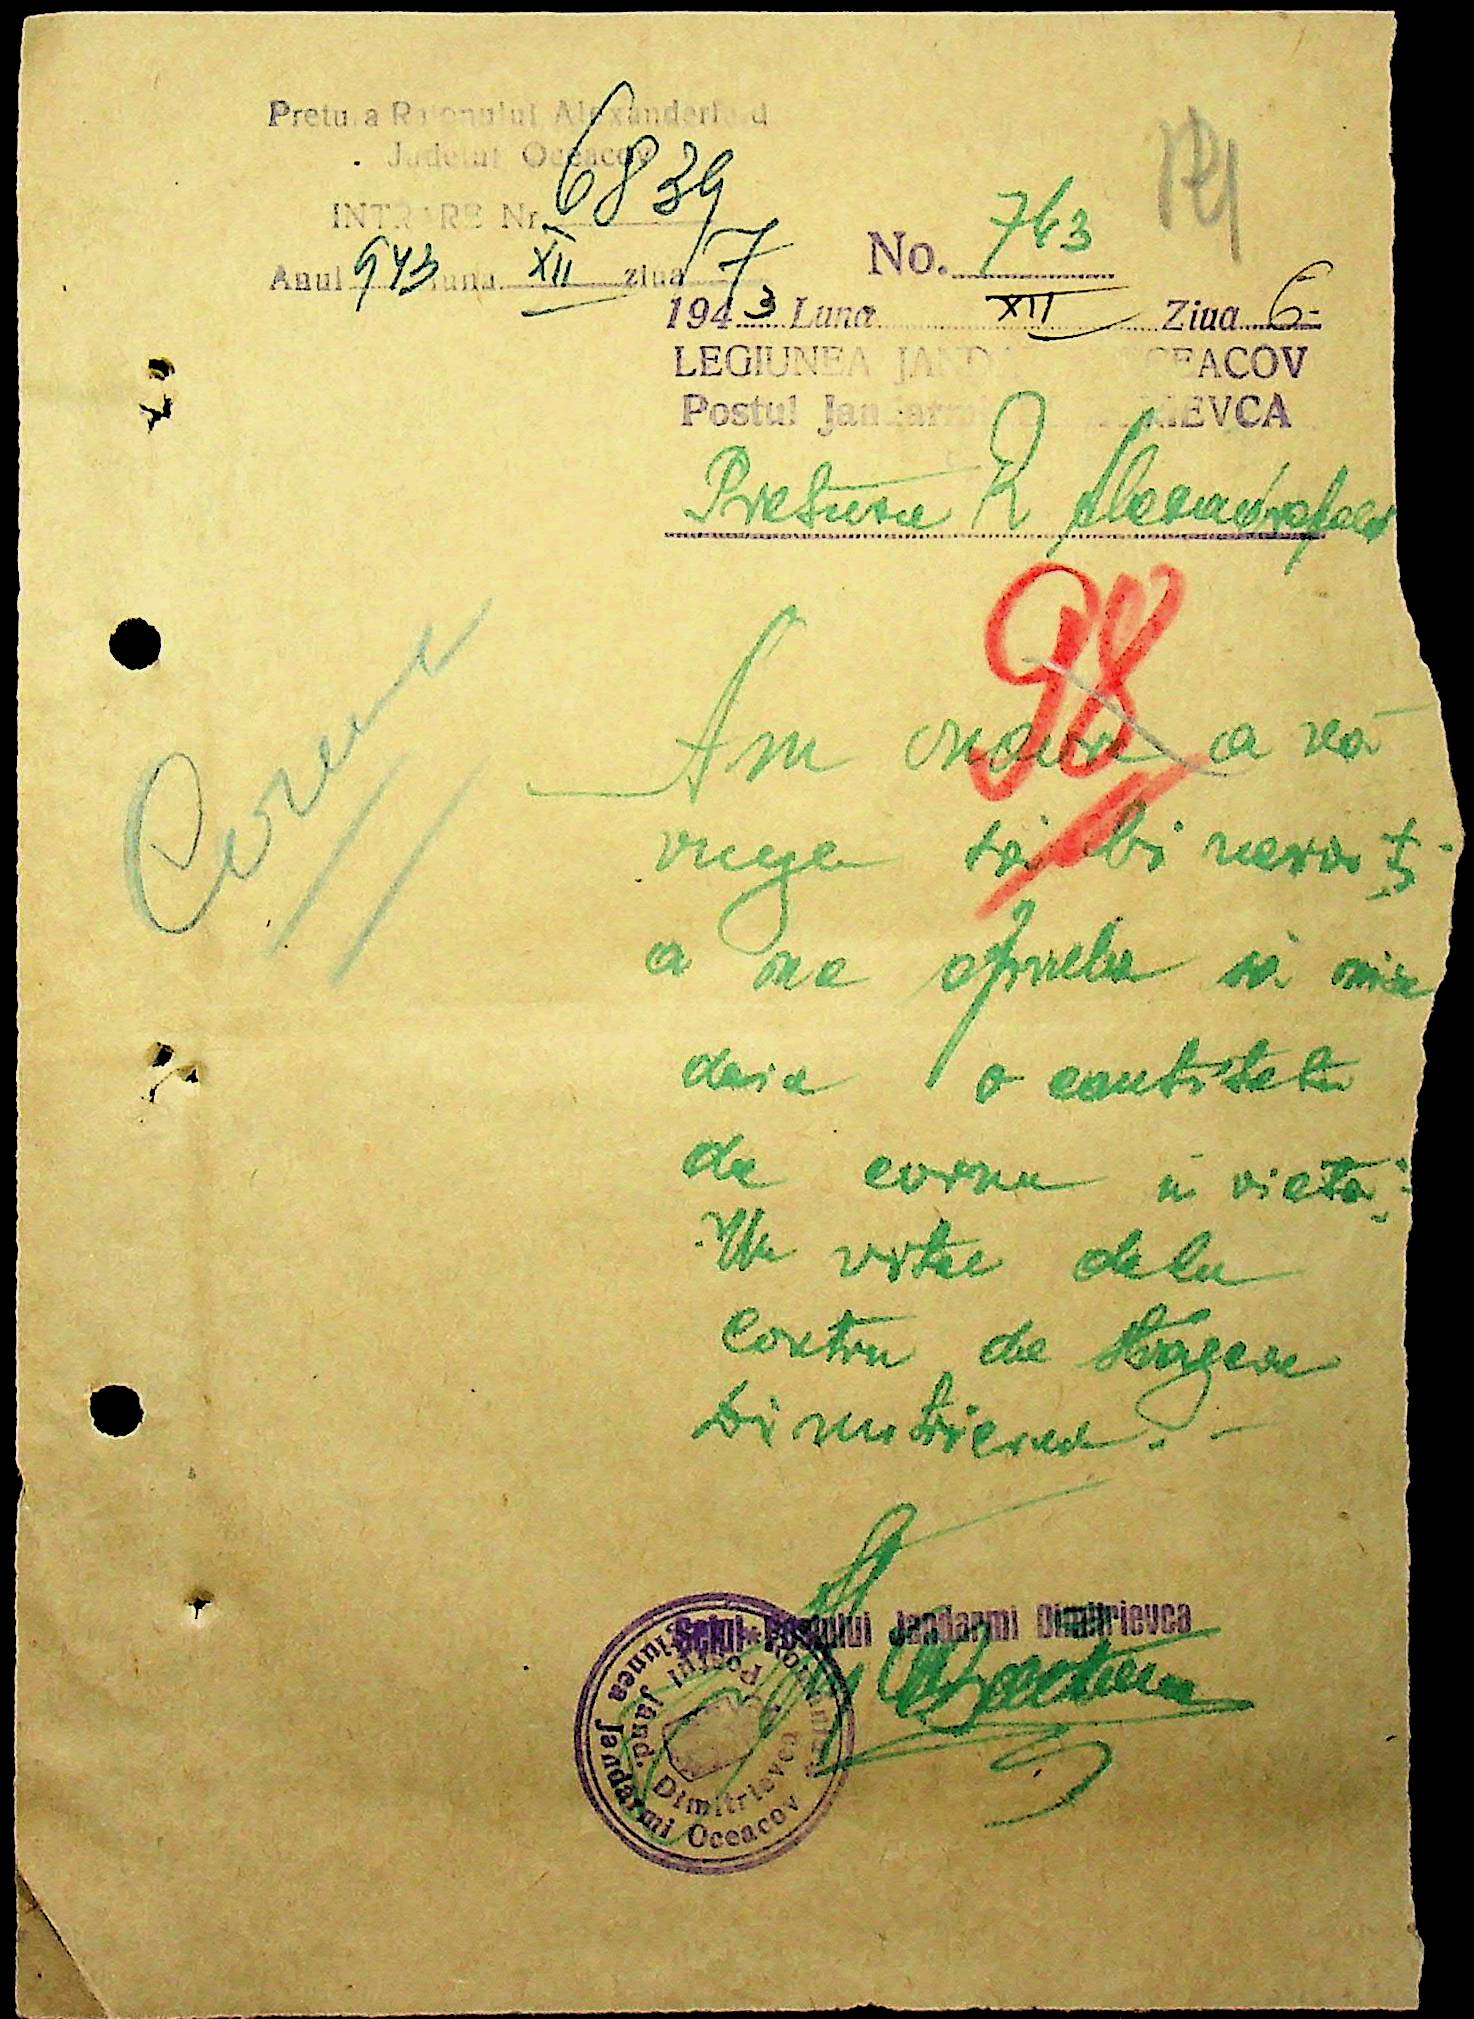 Pretura Raionului Alexanderfeld
Judetul Oceacov
INTRARE Nr. 6839
Anul 943 luna XII ziua 7
No. 763
1943 Luna XII Ziua 6
LEGIUNEA JANDARMI OCEACOV
Postul Jandarmi DIMITRIEVCA
Pretura R Alexandrafeld
98
Am onoare a vă
ruga să bi
a ne aproba să
o cantitate
de carne in vieta
Un vitel dela
de
Dimitrievca.-
Seful Postului Jandarmi Dimitrievca
România * Legiunea Jandarmi Oceacov
Postul Jand. Dimitrievca